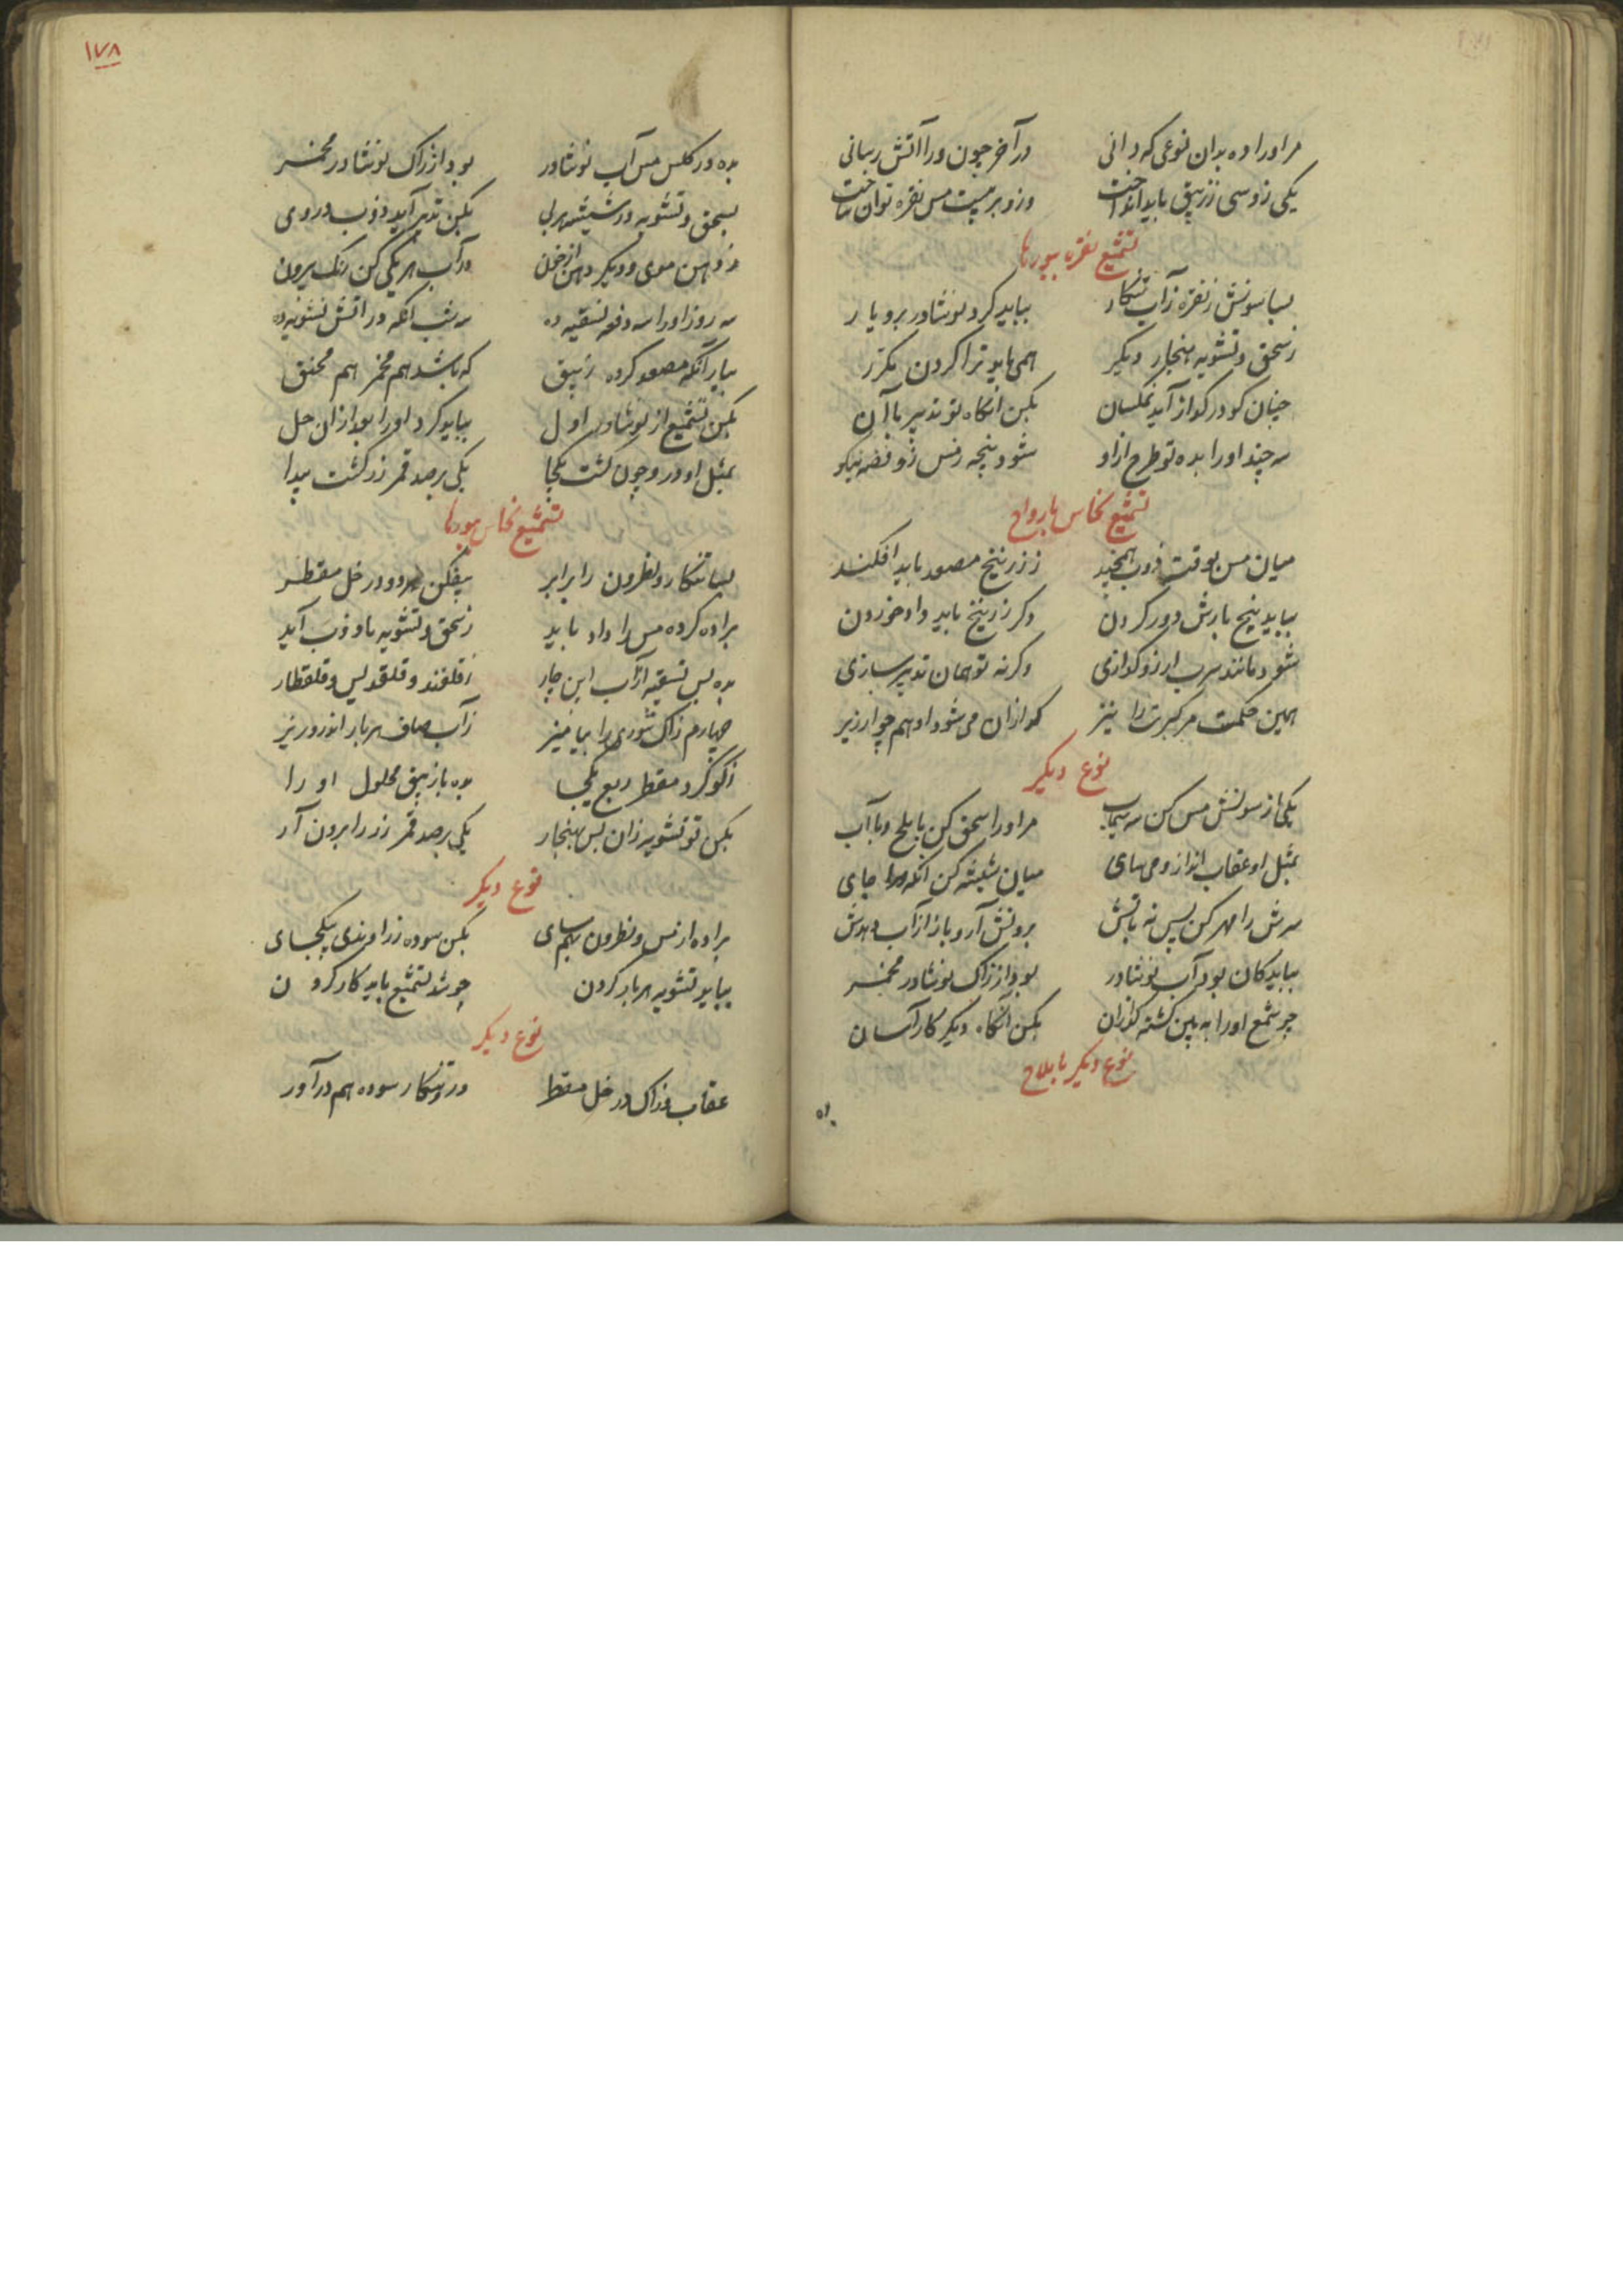 مراورا ده بدان نوعی که دانی در آخر چون ورا آتش رسانی
یکی زو سی ز زیبق باید انداخت وزو بر بیست مس نقره توان ساخت
تشمیع نقره ببورها
بیا سونش ز نقره زاب تنکار بباید کرد نوشادر برو یار
ز سحق و تشویه هنجار دیگر همی باید ترا کردن مکرر
چنان کو در کداز آید نمکسان بکن آنگاه تو تدبیر با آن
سه چند اورا بده تو طرح ازاو شود پنجه زمس زو فضه نیکو
تشمیع نحاس بارواح
میان مس بوقت ذوب ز زرنیخ مصعد باید افکند
بباید پنج بارش دور کردن دگر زرنیخ باید داد خوردن
شود مانند سرب ار زو کدازی وکرنه تو همان تدبیر سازی
همین حکمت مر کبریت را نیز که ازان می شود او هم چو ارزیر
نوع دیگر
یکی از سونش مس کن سه سیماب مراورا سحق کن با ملح و با آب
بمثل او عقاب انداز و می سای میان شیشه کن آنگه جای
سرش را مهر کن پس نه بآتش برونش آر و باز از آب دهش
بباید کان بود آب نوشادر بود از زاک نوشادر مخمر
چو شمع اورا ببین کشته کدازان بکن آنگاه دیگر کار آسان
نوع دیگر باملاح
بده
١٧٨
بده در کلس مس آب نوشادر بود از زاک نوشادر مخمر
بسحق و تشویه در شیشه بکن تدبیر آید ذوب در وی
ز دهن موی و دیگر دهن از خون در آب هر یکی کن رنگ بیرون
سه روز اورا سه دفعه تسقیه ده سه شب آنگه در آتش تشویه ده
بیار آنگه مصعد کرده زیبق که باشد هم محمر هم مخنق
بکن تشمیع از نوشادر اول بباید کرد اورا بعد ازان حل
بمثل او درو چون کشت یکجا یکی بر صد قمر زر گشت پیدا
تشمیع نحاس ببورها
بیا تنکار و نطرون را برابر بیفکن هردو در خل مقطر
براده کرده مس را داد باید ز سحق و تشویه تا ذوب آید
بده پس تسقیه از آب این چار ز قلقند و قلقدیس و قلقطار
چهارم زاک شوری را بیامیز ز آب صاف هر بار اندرو ریز
ز گوگرد مقطر ربع یکجا بده باز زیبق محلول او را
بکن تو تشویه زان پس بهنجار یکی بر صد قمر زر را برون آر
نوع دیگر
براده از مس و نطرون بهم سای بکن سوده زراوندی بیکجای
بباید تشویه هر بار کردن چو شد تشمیع باید کار کردن
نوع دیگر
عقاب و زاک در خل مقطر درو تنکار سوده هم درآور